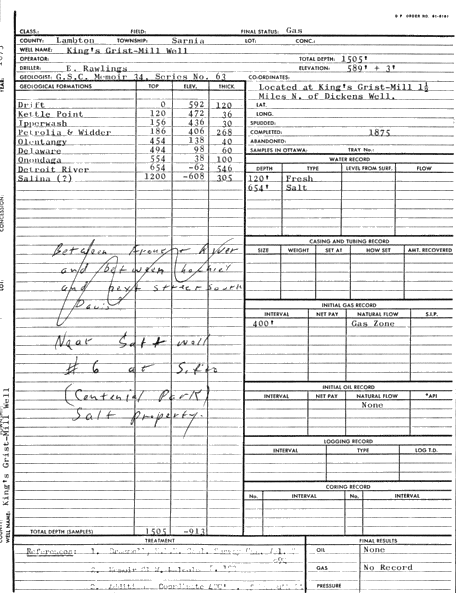 CLASS.: FIELD: FINAL STATUS: Gas
COUNTY: Lambton TOWNSHIP: Sarnia LOT: CONC.:
WELL NAME: King's Grist-Mill Well
OPERATOR: TOTAL DEPTH: 1505'
DRILLER: E. Rawlings ELEVATION: 589' + 3'
GEOLOGIST: G.S.C. Memoir 34, Series No. 63 CO-ORDINATES:
GEOLOGICAL FORMATIONS TOP ELEV. THICK
Drift 0 592 120
Kettle Point 120 472 36
Ipperwash 156 436 30
Petrolia & Widder 186 406 268
Olentangy 454 138 40
Delaware 494 98 60
Onondaga 554 38 100
Detroit River 654 -62 546
Salina (?) 1200 -608 305
Located at King's Grist-Mill 1½
Miles N. of Dickens Well.
LAT.
LONG.
SPUDDED:
COMPLETED: 1875
ABANDONED:
SAMPLES IN OTTAWA: TRAY No.:
WATER RECORD
DEPTH TYPE LEVEL FROM SURF. FLOW
120' Fresh
654' Salt
Between Front & River
and between
and next street South
Davis
Near Salt well
# 6 at
(Centenial Park)
Salt property.
CASING AND TUBING RECORD
SIZE WEIGHT SET AT HOW SET AMT. RECOVERED
INITIAL GAS RECORD
INTERVAL NET PAY NATURAL FLOW S.I.P.
400' Gas Zone
INITIAL OIL RECORD
INTERVAL NET PAY NATURAL FLOW °API
None
LOGGING RECORD
INTERVAL TYPE LOG T.D.
CORING RECORD
No. INTERVAL No. INTERVAL
TOTAL DEPTH (SAMPLES) 1505 -913
TREATMENT
References: 1.
2. Memoir
3.
FINAL RESULTS
OIL None
GAS No Record
PRESSURE
YEAR:
CONCESSION:
LOT:
WELL NAME: King's Grist-Mill Well